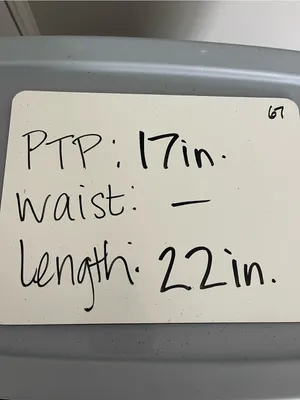 67
PTP: 17in.
waist: —
Length: 22in.